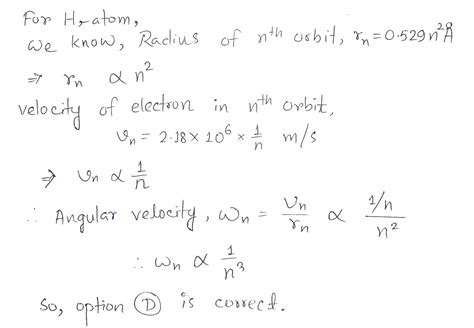 For H-atom,
We know, Radius of nth orbit, rn = 0.529 n² Å
⇒ rn ∝ n²
velocity of electron in nth orbit,
vn = 2.18 × 10⁶ × 1/n m/s
⇒ vn ∝ 1/n
∴ Angular velocity, ωn = vn/rn ∝ (1/n)/n²
∴ ωn ∝ 1/n³
So, option (D) is correct.